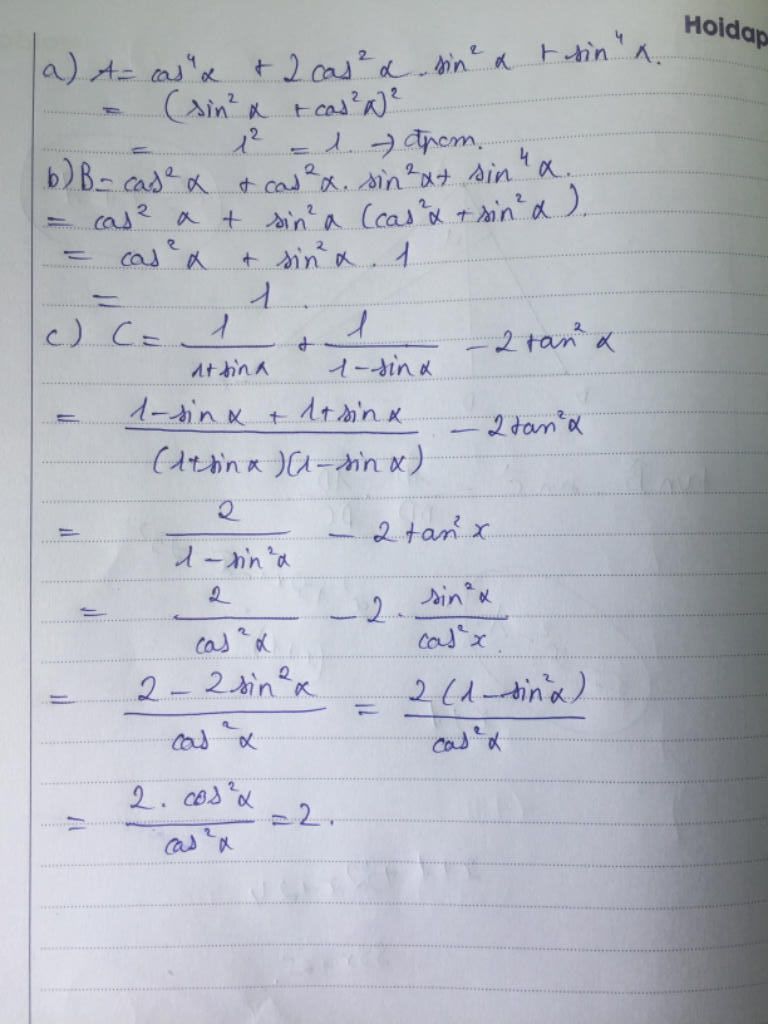 Hoidap
a) A = cos⁴α + 2cos²α . sin²α + sin⁴α.
= (sin²α + cos²α)²
= 1² = 1 → đpcm.
b) B = cos²α + cos²α. sin²α + sin⁴α.
= cos²α + sin²α (cos²α + sin²α).
= cos²α + sin²α . 1
= 1.
c) C = 1/(1+sinα) + 1/(1-sinα) - 2tan²α
= (1-sinα + 1+sinα)/((1+sinα)(1-sinα)) - 2tan²α
= 2/(1-sin²α) - 2tan²x
= 2/cos²α - 2 . sin²α/cos²x.
= (2 - 2sin²α)/cos²α = 2(1-sin²α)/cos²α
= 2 . cos²α/cos²α = 2.